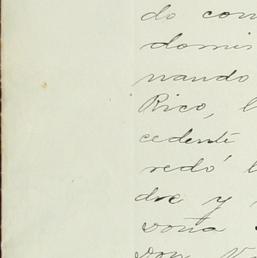 do con
domi
nando
Rico, l
cedente
redó l
dre y
doña
don V